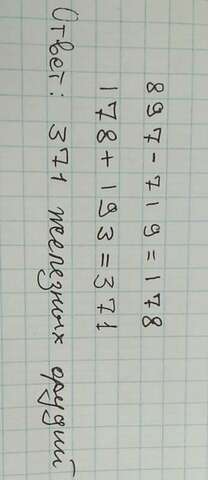 897-719=178
178+193=371
Ответ: 371 железных орудий